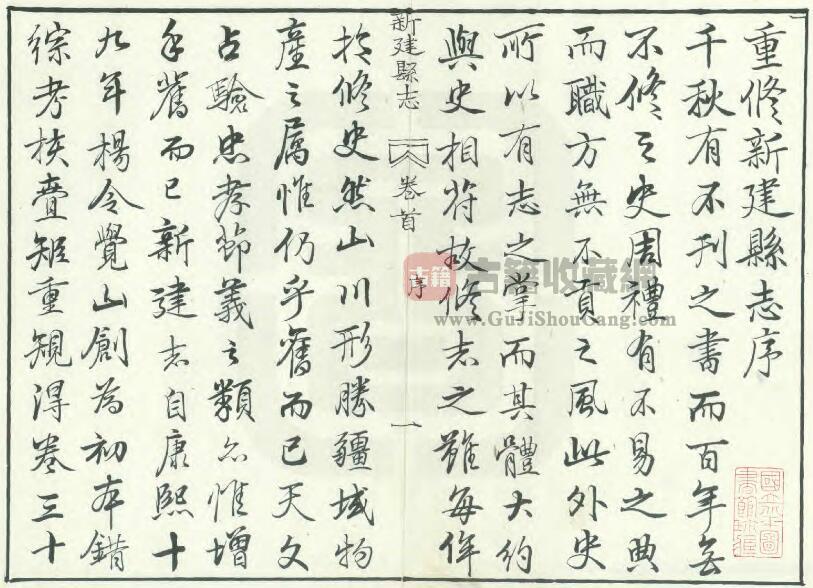 重修新建縣志序
千秋有不刊之書而百年無
不修之史周禮有不易之典
而職方無不貢之風此外史
所以有志之掌而其體大約
與史相符故修志之難每侔
新建縣志 卷首 序 一
於修史然山川形勝疆域物
產之屬惟仍乎舊而已天文
占驗忠孝節義之類亦惟增
手舊而已新建志自康熙十
九年楊令覺山創為初本錯
綜考核疊矩重規得卷三十
國立北平圖
書館收藏
古籍
古籍收藏網
www.GuJiShouCang.com